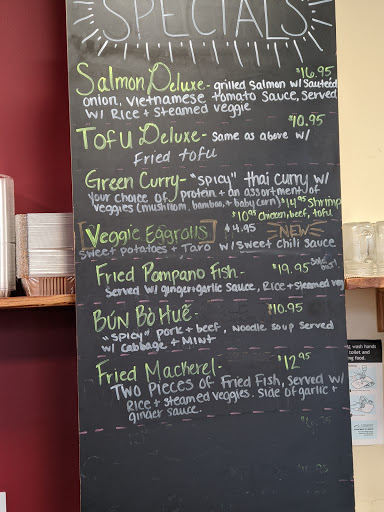 SPECIALS
Salmon Deluxe - grilled salmon w/ Sauteéd $16.95
onion, Vietnamese tomato Sauce, Served
w/ Rice + Steamed veggie
Tofu Deluxe - Same as above w/ $10.95
Fried tofu
Green Curry - "spicy" thai curry w/
your choice of protein + an assortment of
veggies (mushroom, bamboo, + baby corn) $14.95 Shrimp
$10.95 Chicken, beef, tofu
Veggie Eggrolls $4.95 NEW
Sweet potatoes + Taro w/ Sweet chili Sauce
Fried Pompano Fish - $19.95
Served w/ ginger + garlic Sauce, Rice + Steamed veg
Bún Bò Huế - $10.95
"Spicy" pork + beef, noodle soup served
w/ cabbage + Mint
Fried Mackerel - $12.95
Two pieces of Fried Fish, Served w/
Rice + steamed veggies. Side of garlic +
ginger sauce.
wash hands
toilet and
ng food.